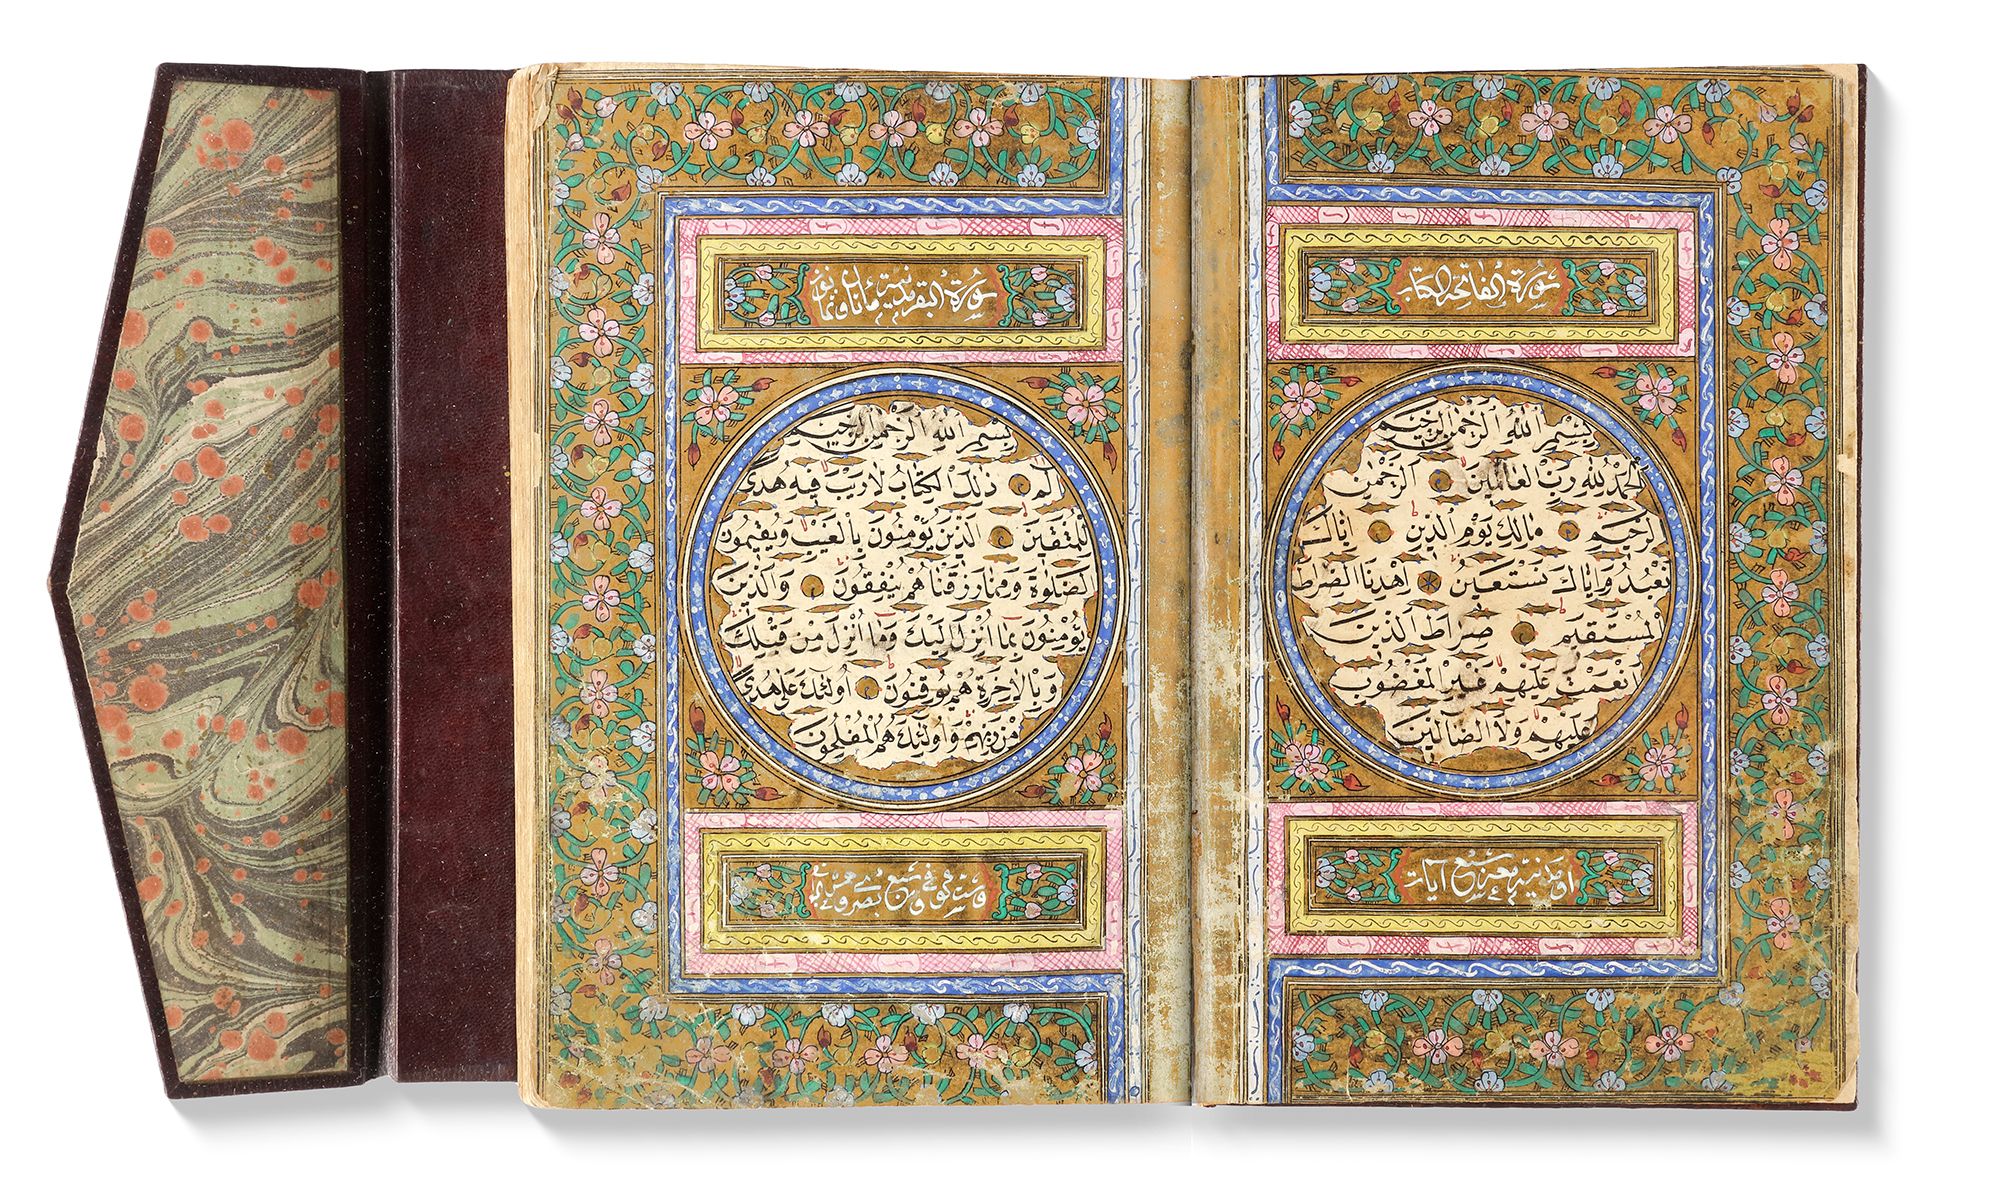 سُورَةُ الفاتحة الكتاب
بِسْمِ اللهِ الرَّحْمٰنِ الرَّحِيمِ
اَلْحَمْدُ لِلّٰهِ رَبِّ الْعَالَمِينَ الرَّحْمٰنِ
الرَّحِيمِ مَالِكِ يَوْمِ الدِّينِ اِيَّاكَ
نَعْبُدُ وَاِيَّاكَ نَسْتَعِينُ اِهْدِنَا الصِّرَاطَ
الْمُسْتَقِيمَ صِرَاطَ الَّذِينَ
اَنْعَمْتَ عَلَيْهِمْ غَيْرِ الْمَغْضُوبِ
عَلَيْهِمْ وَلَا الضَّالِّينَ
او مدنية وهي سبع آيات
سُورَةُ البقرة مدنية مائتان وثمانون
بِسْمِ اللهِ الرَّحْمٰنِ الرَّحِيمِ
الٓمٓ ذٰلِكَ الْكِتَابُ لَا رَيْبَ فِيهِ هُدًى
لِلْمُتَّقِينَ اَلَّذِينَ يُؤْمِنُونَ بِالْغَيْبِ وَيُقِيمُونَ
الصَّلٰوةَ وَمِمَّا رَزَقْنَاهُمْ يُنْفِقُونَ وَالَّذِينَ
يُؤْمِنُونَ بِمَا اُنْزِلَ اِلَيْكَ وَمَا اُنْزِلَ مِنْ قَبْلِكَ
وَبِالْاٰخِرَةِ هُمْ يُوقِنُونَ اُولٰئِكَ عَلٰى هُدًى
مِنْ رَبِّهِمْ وَاُولٰئِكَ هُمُ الْمُفْلِحُونَ
وست كوفي وسبع